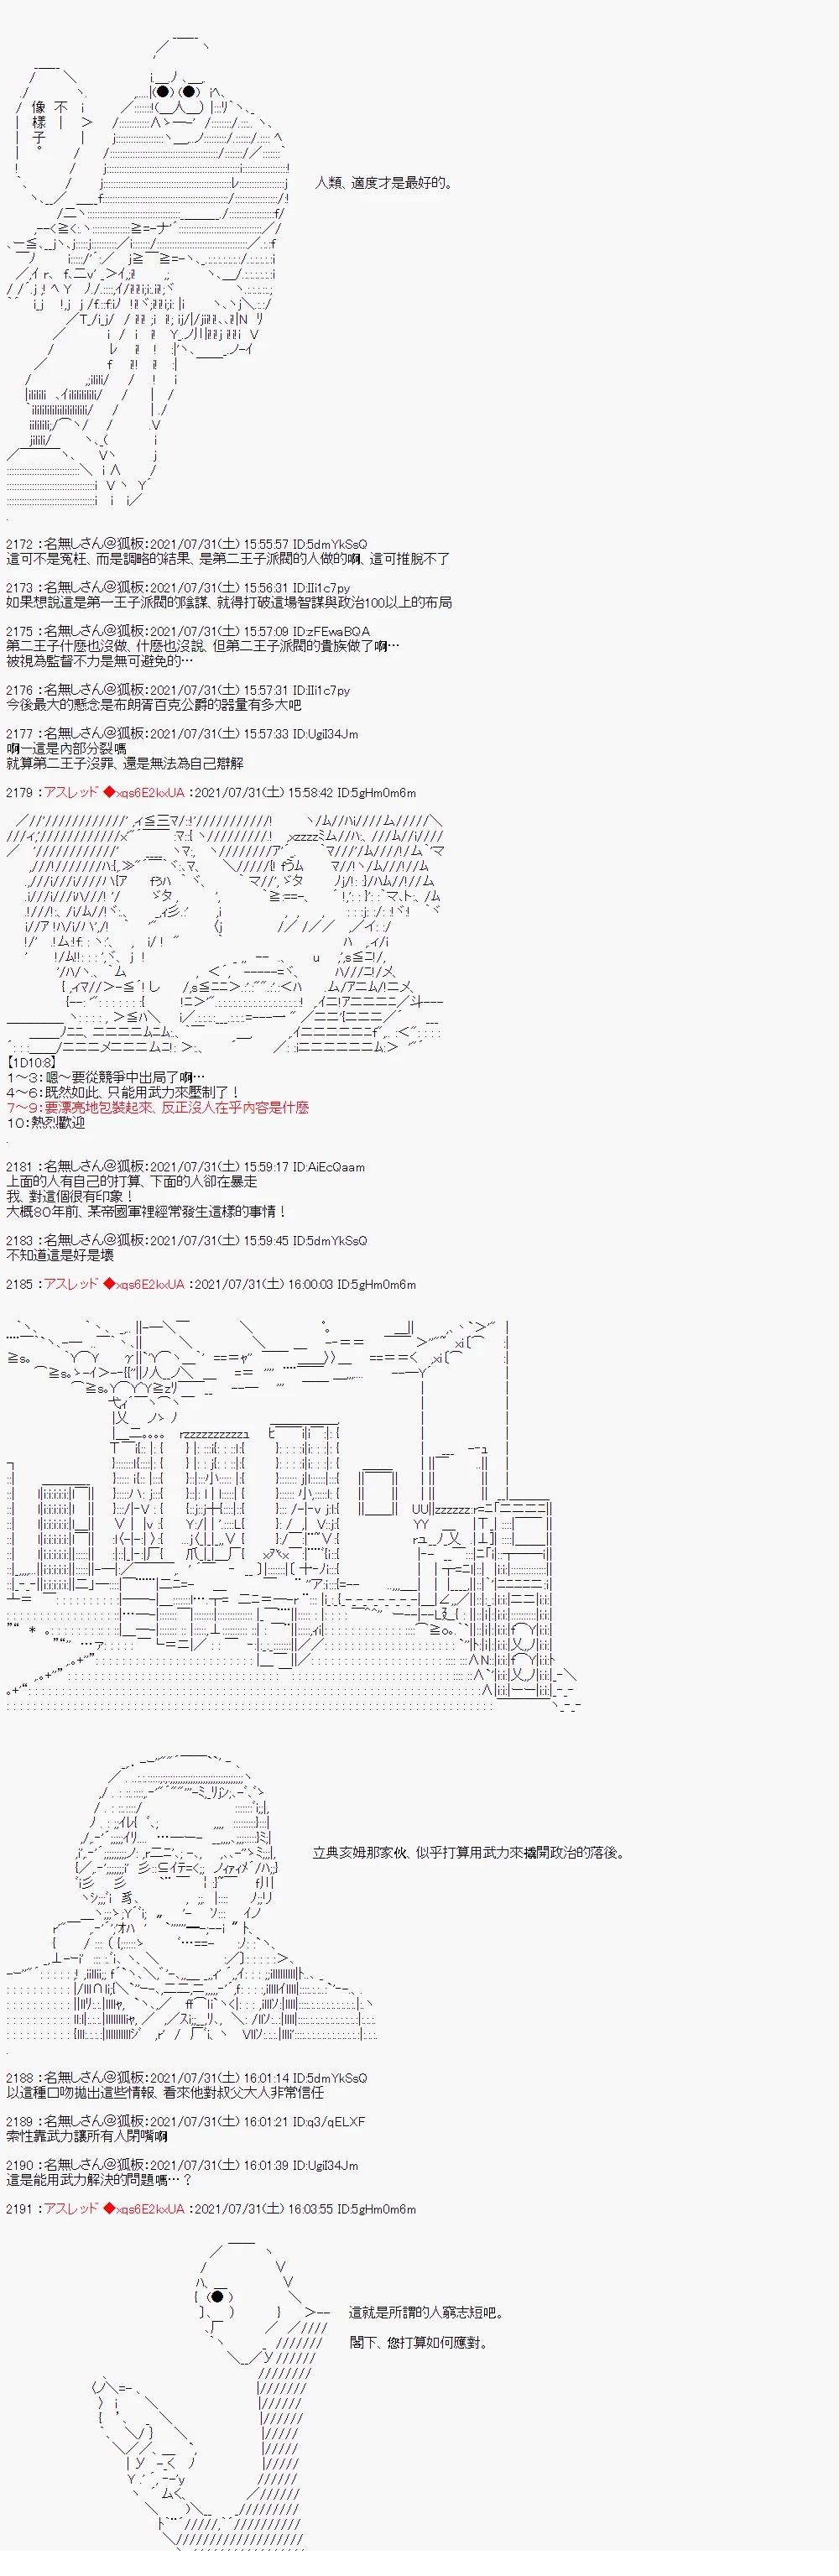 不
像
樣
子
。
人類、適度才是最好的。
2172 ：名無しさん＠狐板：2021/07/31(土) 15:55:57 ID:5dmYkSsQ
這可不是冤枉、而是調略的結果、是第二王子派閥的人做的啊、這可推脫不了
2173 ：名無しさん＠狐板：2021/07/31(土) 15:56:31 ID:IIi1c7py
如果想說這是第一王子派閥的陰謀、就得打破這場智謀與政治100以上的布局
2175 ：名無しさん＠狐板：2021/07/31(土) 15:57:09 ID:zFEwaBQA
第二王子什麼也沒做、什麼也沒說、但第二王子派閥的貴族做了啊…
被視為監督不力是無可避免的…
2176 ：名無しさん＠狐板：2021/07/31(土) 15:57:31 ID:IIi1c7py
今後最大的懸念是布朗胥百克公爵的器量有多大吧
2177 ：名無しさん＠狐板：2021/07/31(土) 15:57:33 ID:UgiI34Jm
啊ー這是內部分裂嗎
就算第二王子沒罪、還是無法為自己辯解
2179 ：アスレッド ◆xqs6E2kxUA ：2021/07/31(土) 15:58:42 ID:5gHm0m6m
【1D10:8】
1～3：嗯～要從競爭中出局了啊…
4～6：既然如此、只能用武力來壓制了！
7～9：要漂亮地包裝起來、反正沒人在乎內容是什麼
10：熱烈歡迎
2181 ：名無しさん＠狐板：2021/07/31(土) 15:59:17 ID:AiEcQaam
上面的人有自己的打算、下面的人卻在暴走
我、對這個很有印象！
大概80年前、某帝國軍裡經常發生這樣的事情！
2183 ：名無しさん＠狐板：2021/07/31(土) 15:59:45 ID:5dmYkSsQ
不知道這是好是壞
2185 ：アスレッド ◆xqs6E2kxUA ：2021/07/31(土) 16:00:03 ID:5gHm0m6m
立典亥姆那家伙、似乎打算用武力來撬開政治的落後。
2188 ：名無しさん＠狐板：2021/07/31(土) 16:01:14 ID:5dmYkSsQ
以這種口吻拋出這些情報、看來他對叔父大人非常信任
2189 ：名無しさん＠狐板：2021/07/31(土) 16:01:21 ID:q3/qELXF
索性靠武力讓所有人閉嘴啊
2190 ：名無しさん＠狐板：2021/07/31(土) 16:01:39 ID:UgiI34Jm
這是能用武力解決的問題嗎…？
2191 ：アスレッド ◆xqs6E2kxUA ：2021/07/31(土) 16:03:55 ID:5gHm0m6m
這就是所謂的人窮志短吧。
閣下、您打算如何應對。